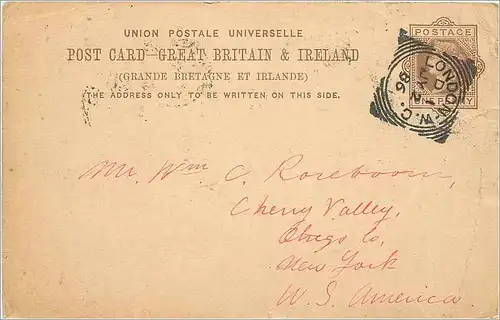 UNION POSTALE UNIVERSELLE
POST CARD—GREAT BRITAIN & IRELAND
(GRANDE BRETAGNE ET IRLANDE)
(THE ADDRESS ONLY TO BE WRITTEN ON THIS SIDE.
POSTAGE
ONE PENNY
LONDON. W.C.
96
Mr. Wm C. Roseboom,
Cherry Valley,
Otsego Co,
New York
U. S. America.